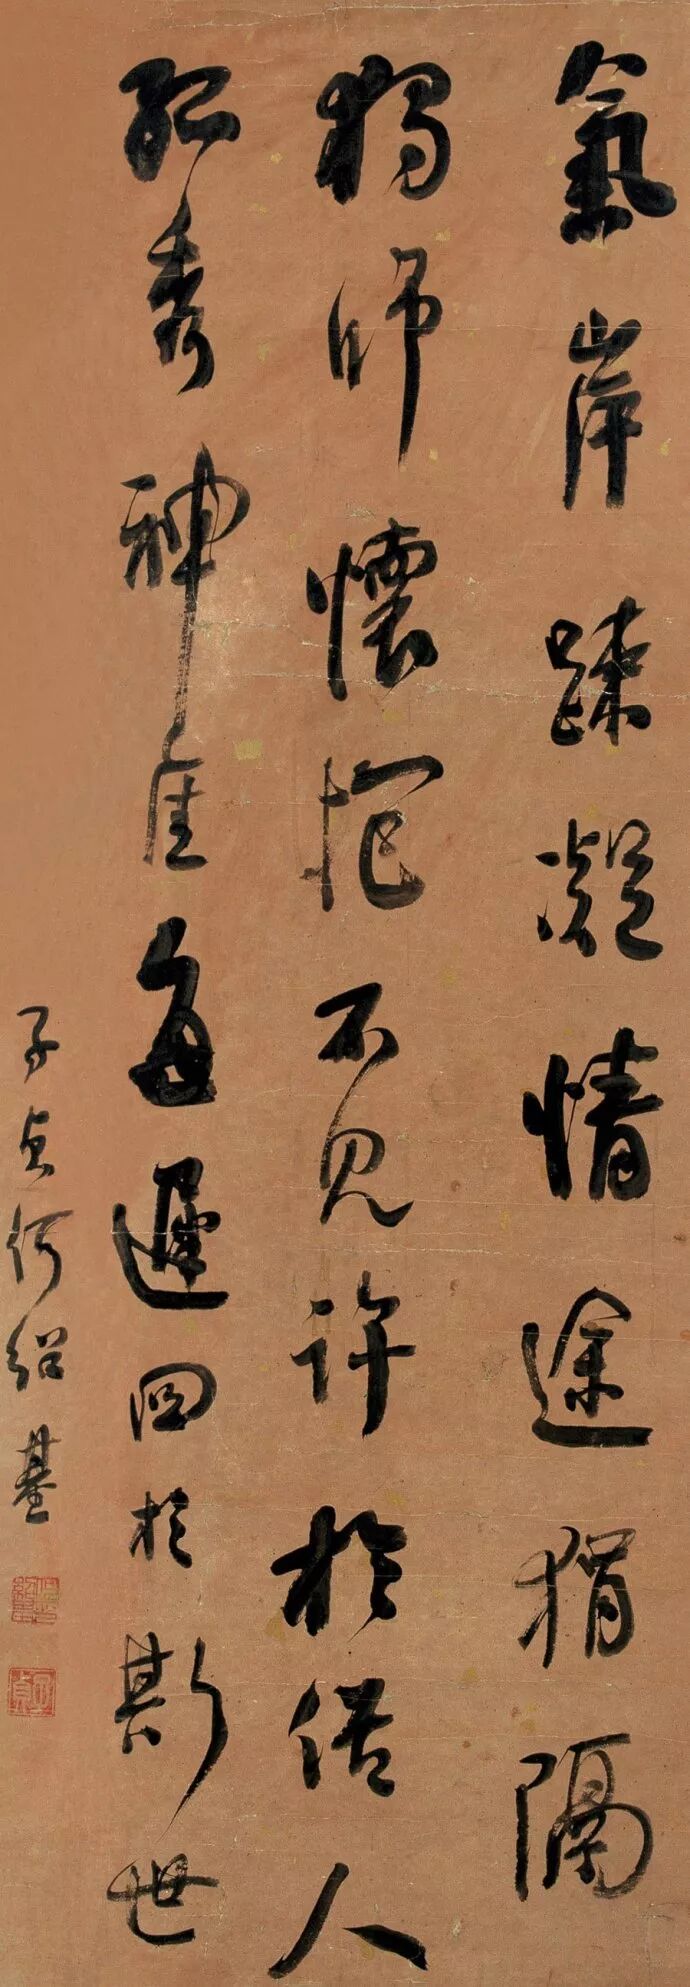 氣岸踈凝情途狷隔
獨師懷抱不見許於俗人
孤秀神崖每遲回於斯世
子貞何紹基